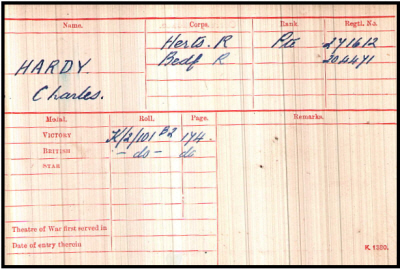 Name. Corps. Rank Regtl. No.
Herts. R Pte 271612
HARDY. Bedf R 204471
Charles.
Medal. Roll. Page. Remarks.
VICTORY K/2/101 B2 174.
BRITISH - do - do
STAR
Theatre of War first served in
Date of entry therein K. 1380.